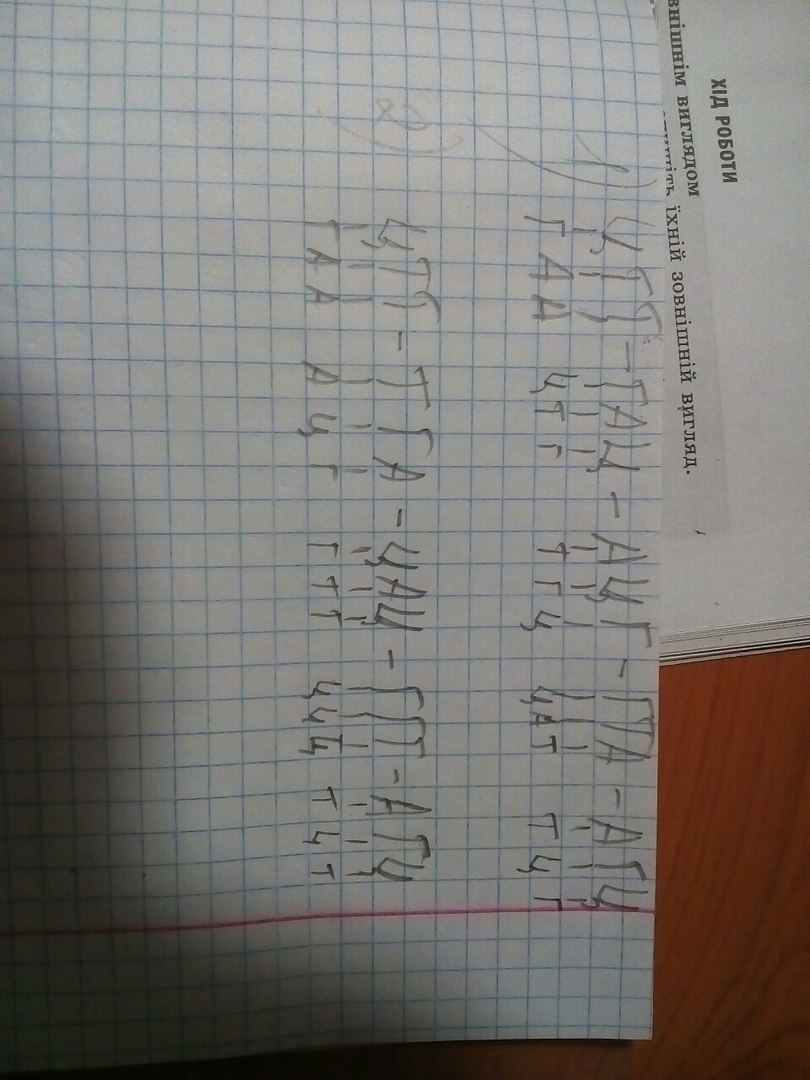 ХІД РОБОТИ
внішнім виглядом
їхній зовнішній вигляд.
1) ЦТТ - ГАЦ - АЦГ - ГТА - АГЦ
ГАА ЦТГ ТГЦ ЦАТ ТЦГ
2) ЦТТ - ТГА - ЦАЦ - ГГТ - АГЦ
ГАА АЦГ ГТТ ЦЦЦ ТЦТ